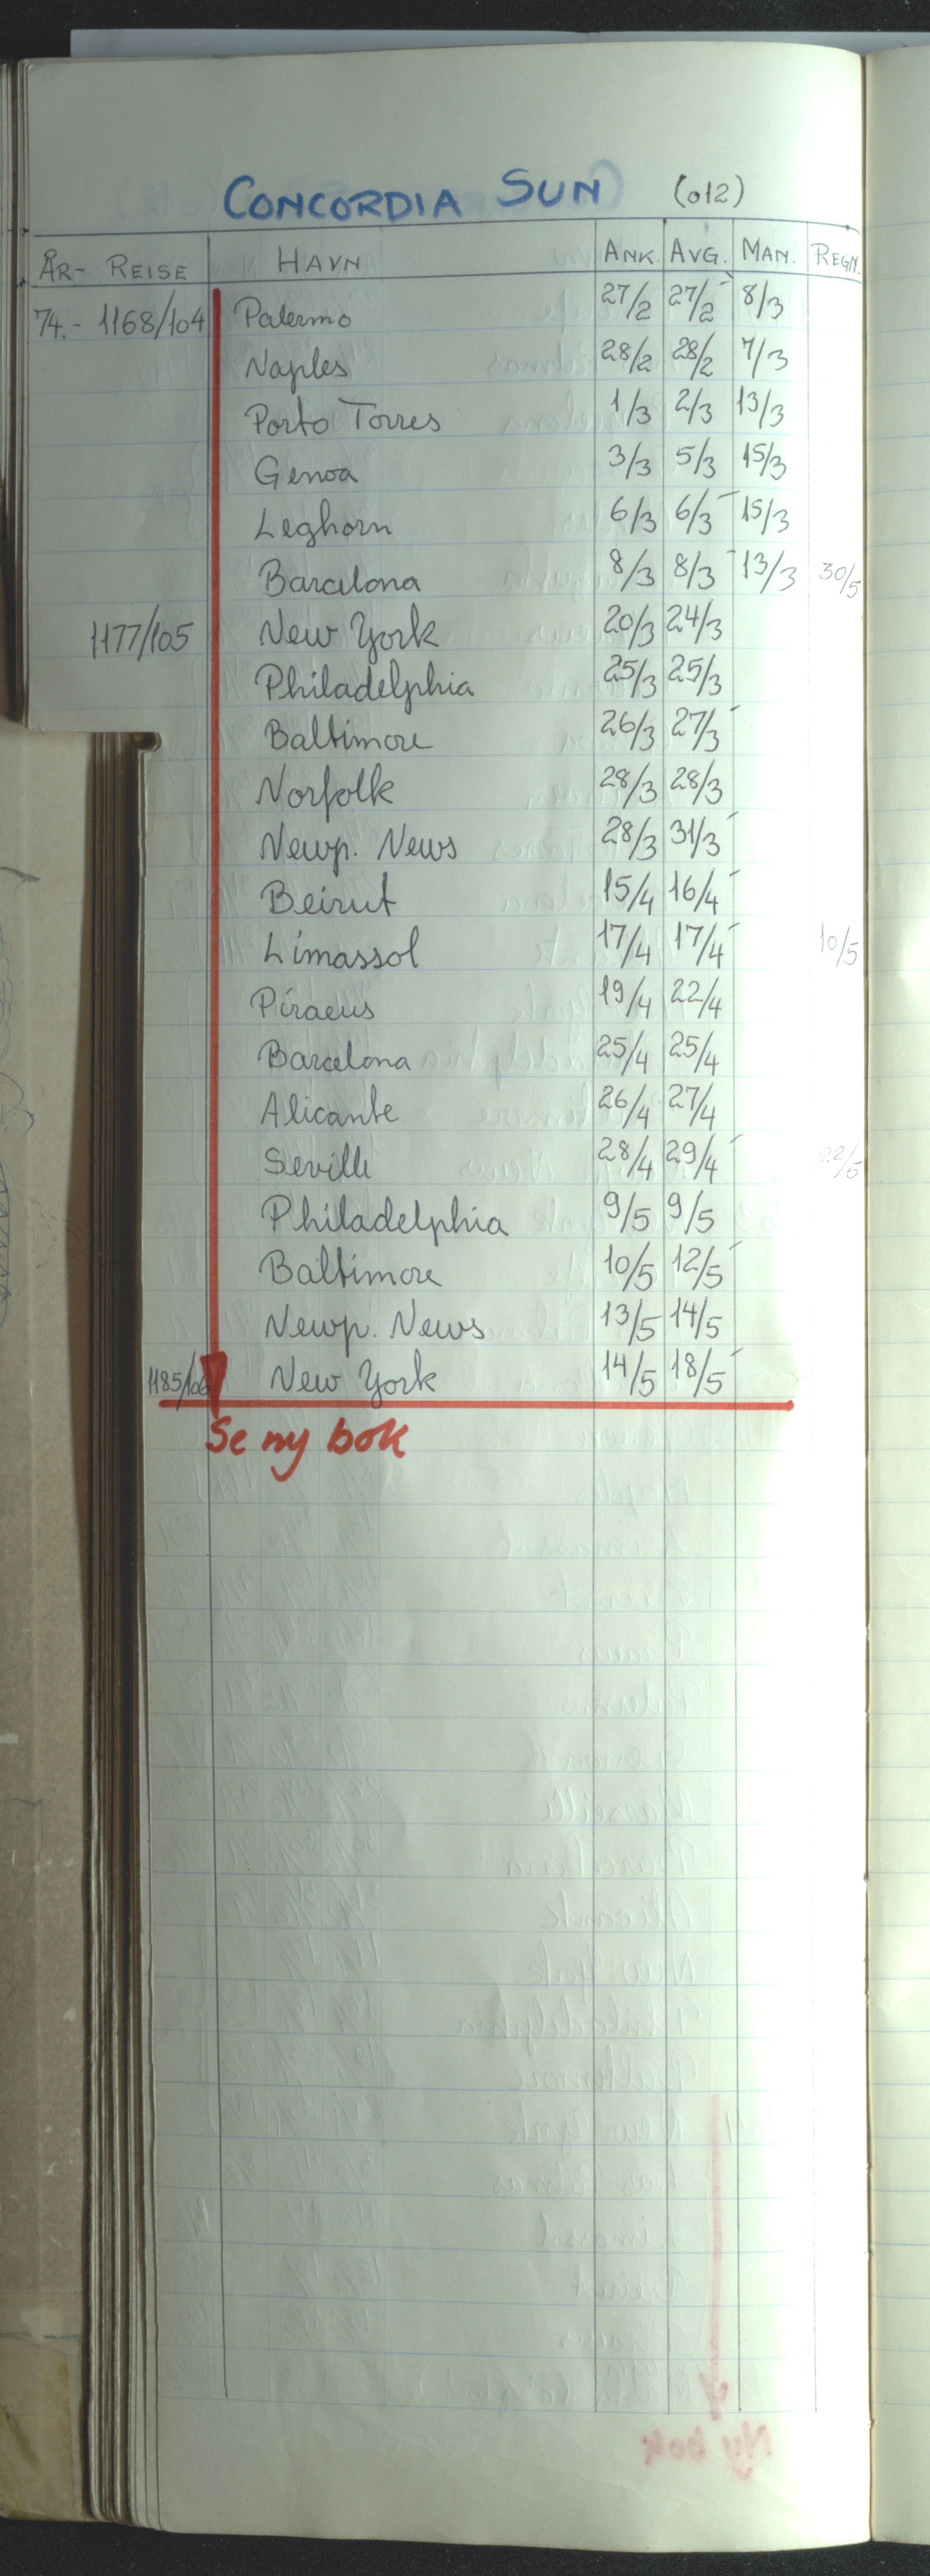 CONCORDIA SUN (012)
ÅR- REISE HAVN ANK. AVG. MAN. REGN.
74.- 1168/104 Palermo 27/2 27/2 8/3
Naples 28/2 28/2 7/3
Porto Torres 1/3 2/3 13/3
Genoa 3/3 5/3 15/3
Leghorn 6/3 6/3 15/3
Barcelona 8/3 8/3 13/3 30/5
1177/105 New York 20/3 24/3
Philadelphia 25/3 25/3
Baltimore 26/3 27/3
Norfolk 28/3 28/3
Newp. News 28/3 31/3
Beirut 15/4 16/4
Limassol 17/4 17/4 10/5
Piraeus 19/4 22/4
Barcelona 25/4 25/4
Alicante 26/4 27/4
Seville 28/4 29/4 22/5
Philadelphia 9/5 9/5
Baltimore 10/5 12/5
Newp. News 13/5 14/5
1185/106 New York 14/5 18/5
Se ny bok